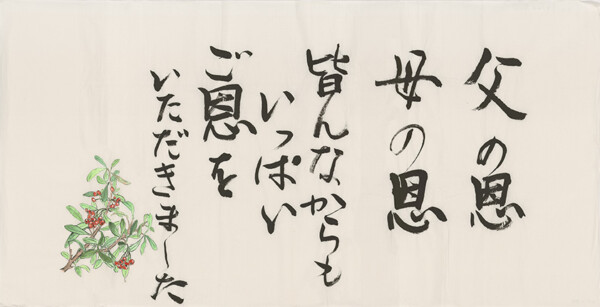 父の恩
母の恩
皆んなからも
いっぱい
ご恩を
いただきました